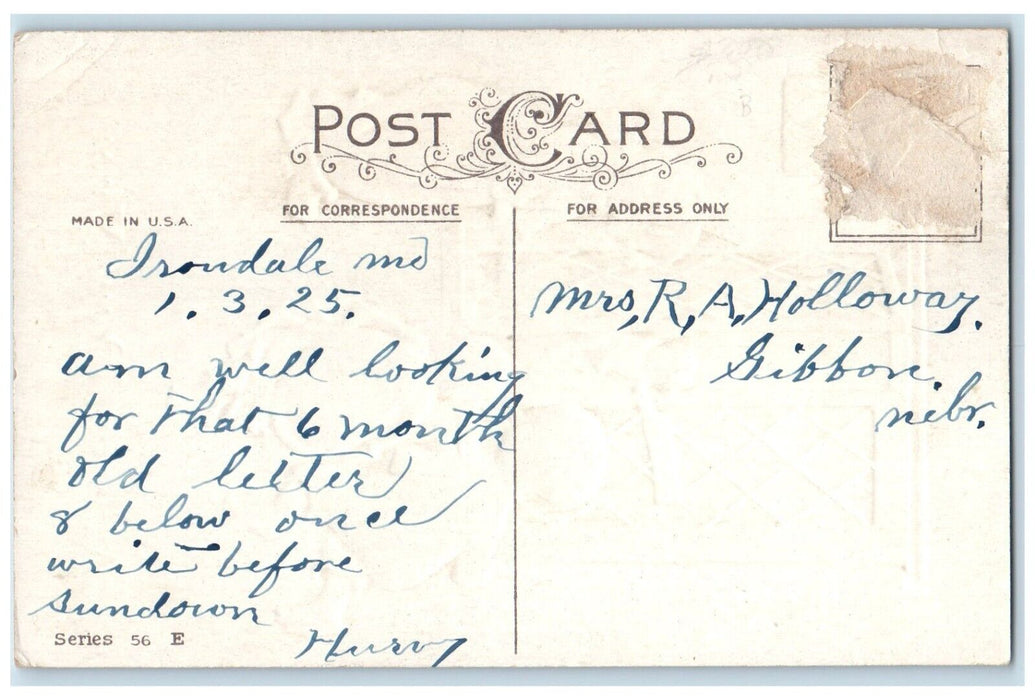 POST CARD
MADE IN U.S.A.
FOR CORRESPONDENCE
FOR ADDRESS ONLY
Irondale Mo
1. 3, 25.
am well looking
for that 6 month
old letter
8 below once
write before
sundown
Mrs, R, A, Holloway.
Gibbon.
nebr.
Series 56 E